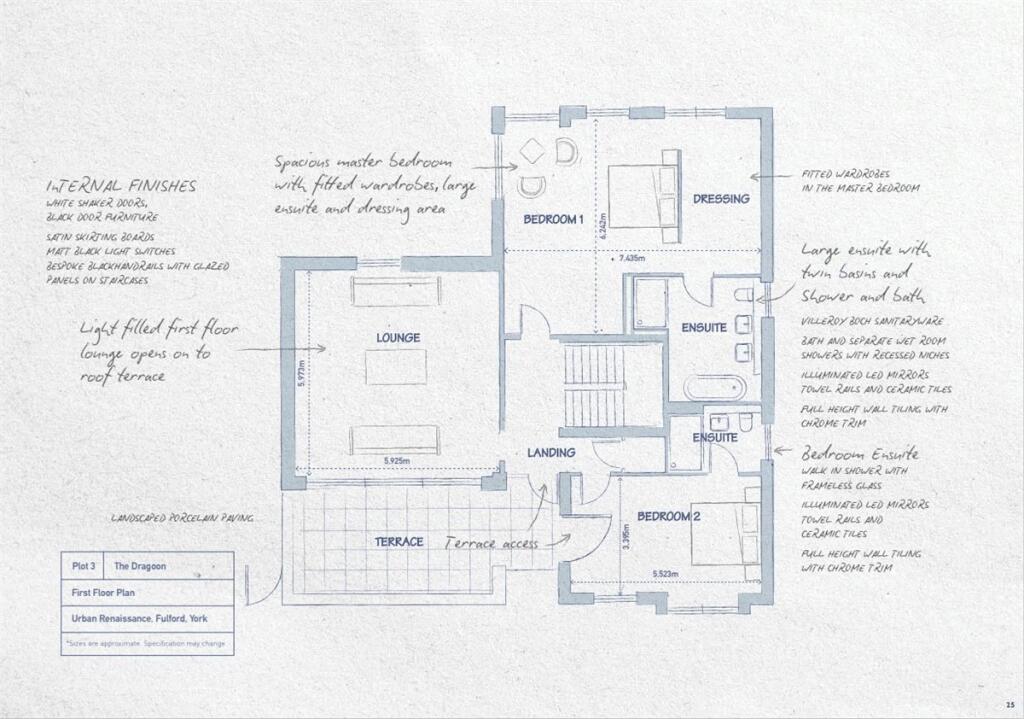 InTERNAL FINISHES
WHITE SHAKER DOORS,
BLACK DOOR FURNITURE
SATIN SKIRTING BOARDS
MATT BLACK LIGHT SWITCHES
BESPOKE BLACKHANDRAILS WITH GLAZED
PANELS ON STAIRCASES
Light filled first floor
lounge opens on to
roof terrace
Spacious master bedroom
with fitted wardrobes, large
ensuite and dressing area
BEDROOM 1
6.242m
7.435m
DRESSING
FITTED WARDROBES
IN THE MASTER BEDROOM
LOUNGE
5.973m
5.925m
ENSUITE
Large ensuite with
twin basins and
Shower and bath
VILLEROY BOCH SANITARYWARE
BATH AND SEPARATE WET ROOM
SHOWERS WITH RECESSED NICHES
ILLUMINATED LED MIRRORS
TOWEL RAILS AND CERAMIC TILES
FULL HEIGHT WALL TILING WITH
CHROME TRIM
LANDING
ENSUITE
Bedroom Ensuite
WALK IN SHOWER WITH
FRAMELESS GLASS
ILLUMINATED LED MIRRORS
TOWEL RAILS AND
CERAMIC TILES
FULL HEIGHT WALL TILING
WITH CHROME TRIM
LANDSCAPED PORCELAIN PAVING
TERRACE
Terrace access
BEDROOM 2
3.395m
5.523m
Plot 3 The Dragoon
First Floor Plan
Urban Renaissance, Fulford, York
*Sizes are approximate. Specification may change
25